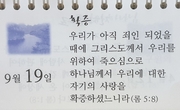 확증
우리가 아직 죄인 되었을
때에 그리스도께서 우리를
위하여 죽으심으로
하나님께서 우리에 대한
자기의 사랑을
확증하셨느니라 (롬 5:8)
9월 19일